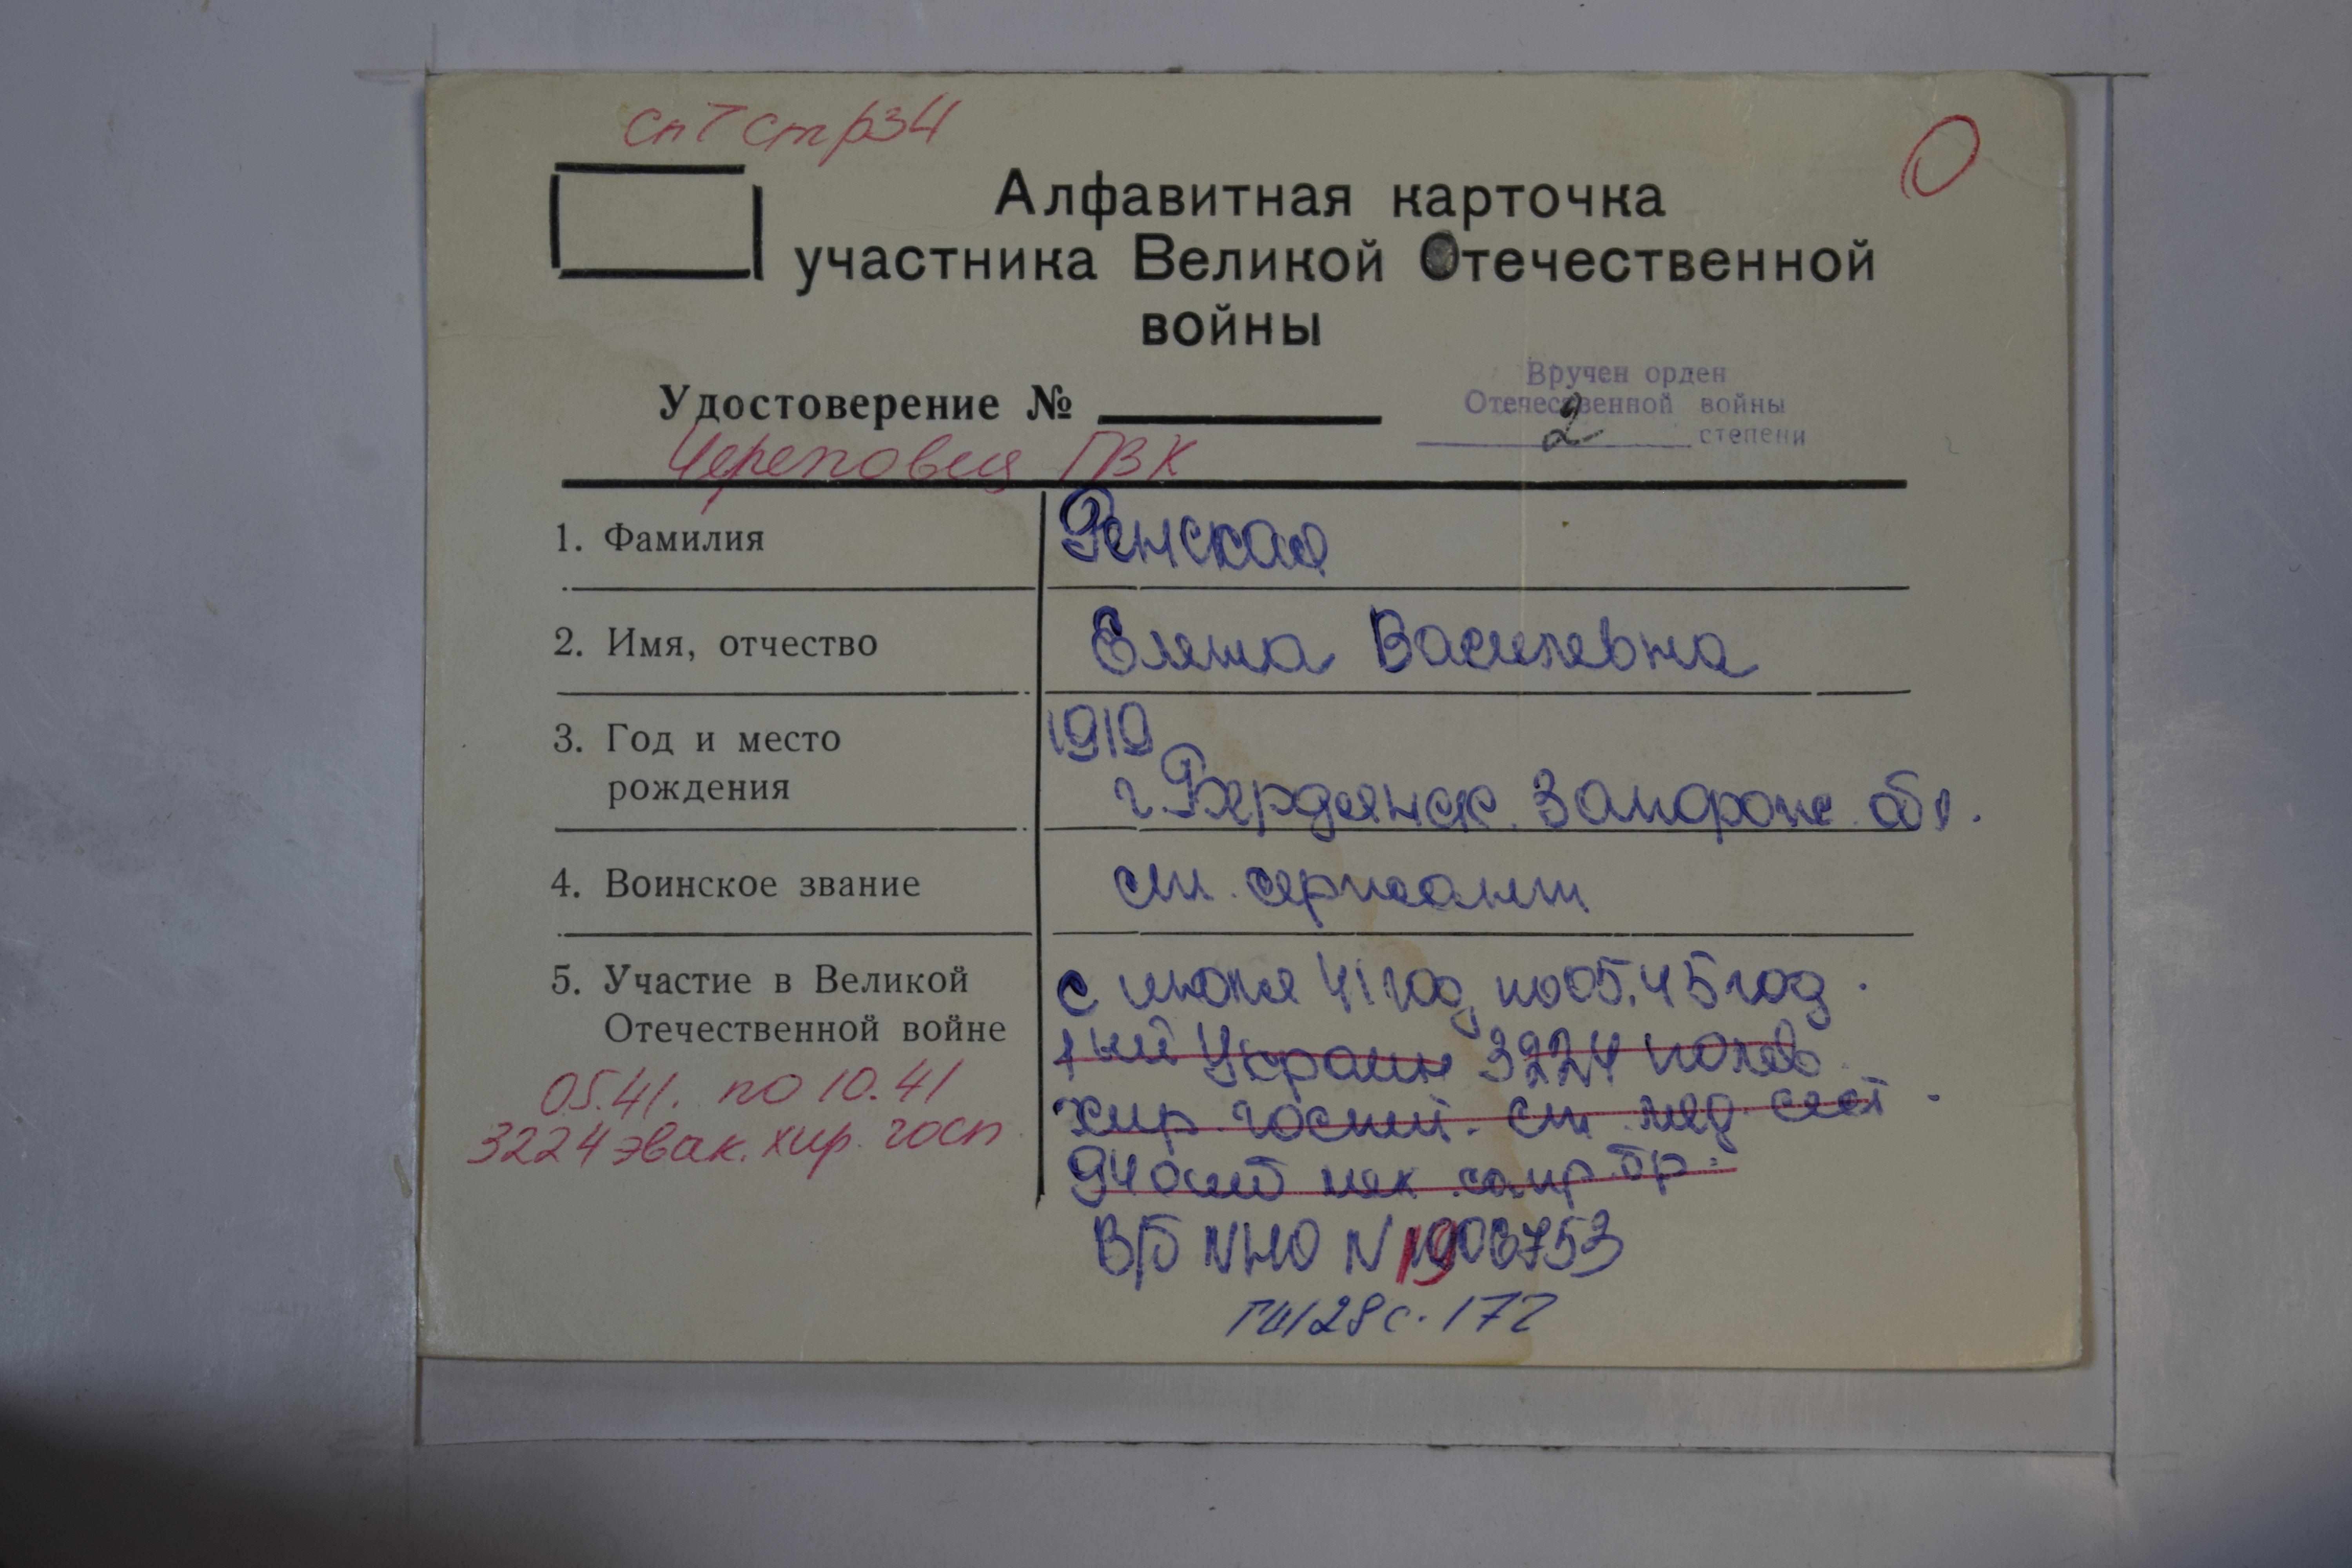 сп 7 стр 34
О
Алфавитная карточка
участника Великой Отечественной
войны
Вручен орден
Отечественной войны
2 степени
Удостоверение №
Череповец ГВК
1. Фамилия Ренская
2. Имя, отчество Елена Василевна
3. Год и место 1919
рождения г. Бердянск. Запорож. обл.
4. Воинское звание ст. сержант
5. Участие в Великой с июня 41 год по 05.45 год.
Отечественной войне 1ый Украин 3224 полев
05.41. по 10.41 хир. госпит. ст. мед. сест.
3224 эвак. хир. госп 94 мех бр.
В/б N 1903753
с. 172